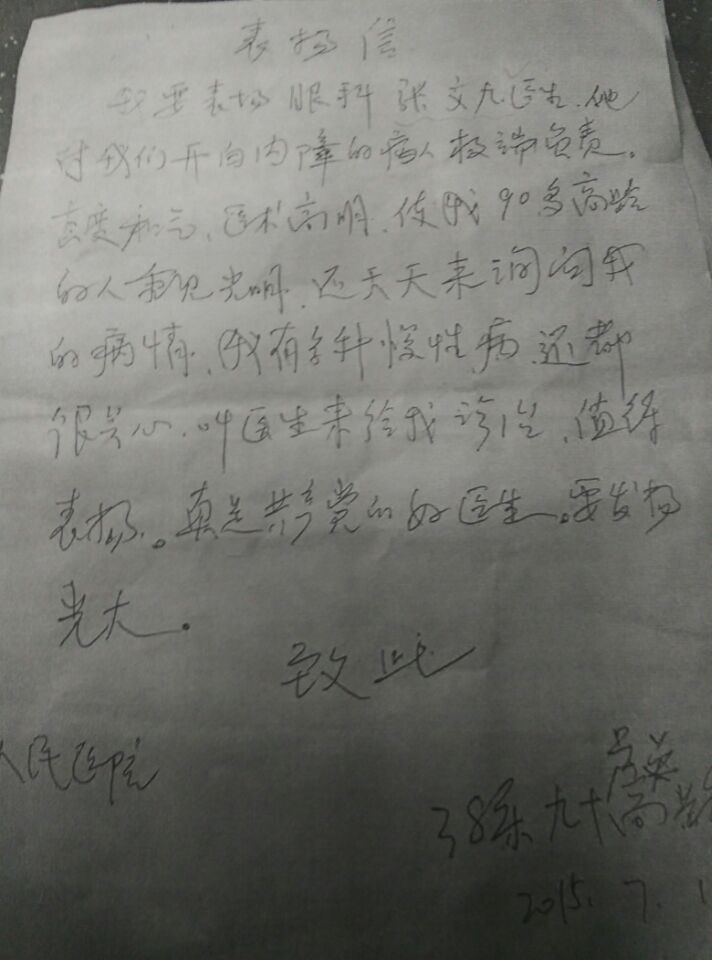 表扬信
我要表扬眼科张文九医生.他
对我们开白内障的病人极端负责。
态度和气、医术高明.使我90多高龄
的人重见光明.还天天来询问我
的病情.我有多种慢性病.还都
很关心.叫医生来给我诊治、值得
表扬。真是共产党的好医生。要发扬
光大。
致此
人民医院
吕英
38床九十高龄
2015.7.1